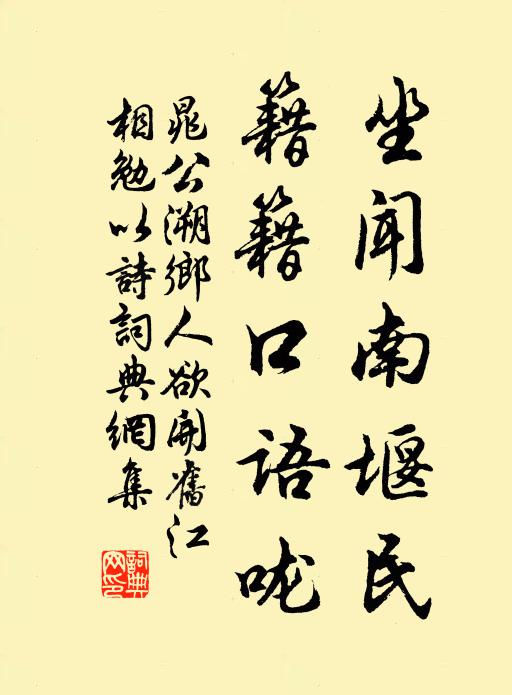 坐闻南堰民
籍籍口语咙
晁公溯鄉人欲開舊江
相勉以詩詞典網集
詞典网印